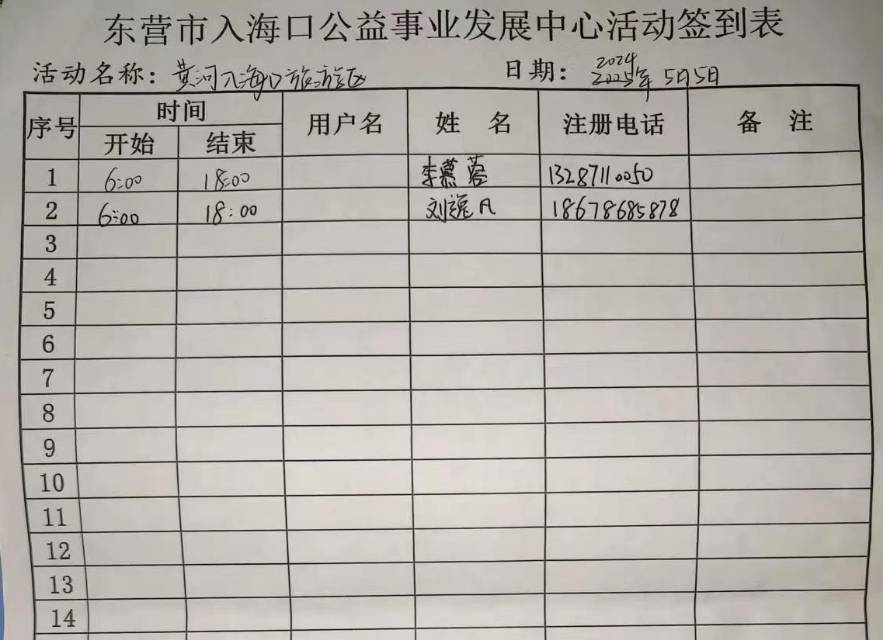 东营市入海口公益事业发展中心活动签到表
活动名称：黄河入海口旅游区 日期：2024 2025年 5月5日
序号 时间 用户名 姓 名 注册电话 备 注
开始 结束
1 6:00 18:00 李慕蓉 13287110050
2 6:00 18:00 刘逸凡 18678685878
3
4
5
6
7
8
9
10
11
12
13
14